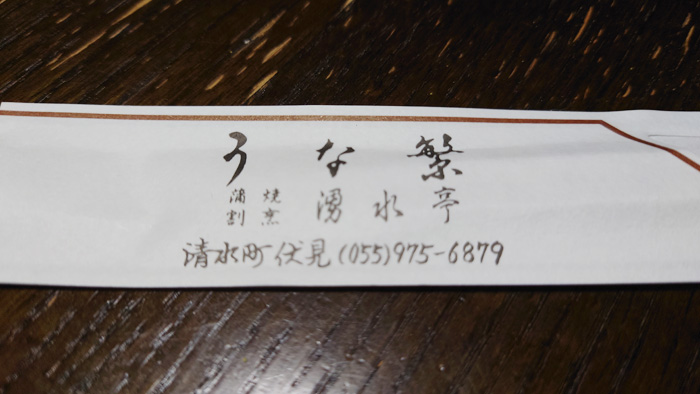 うな繁
蒲焼 割烹 湧水亭
清水町伏見(055)975-6879